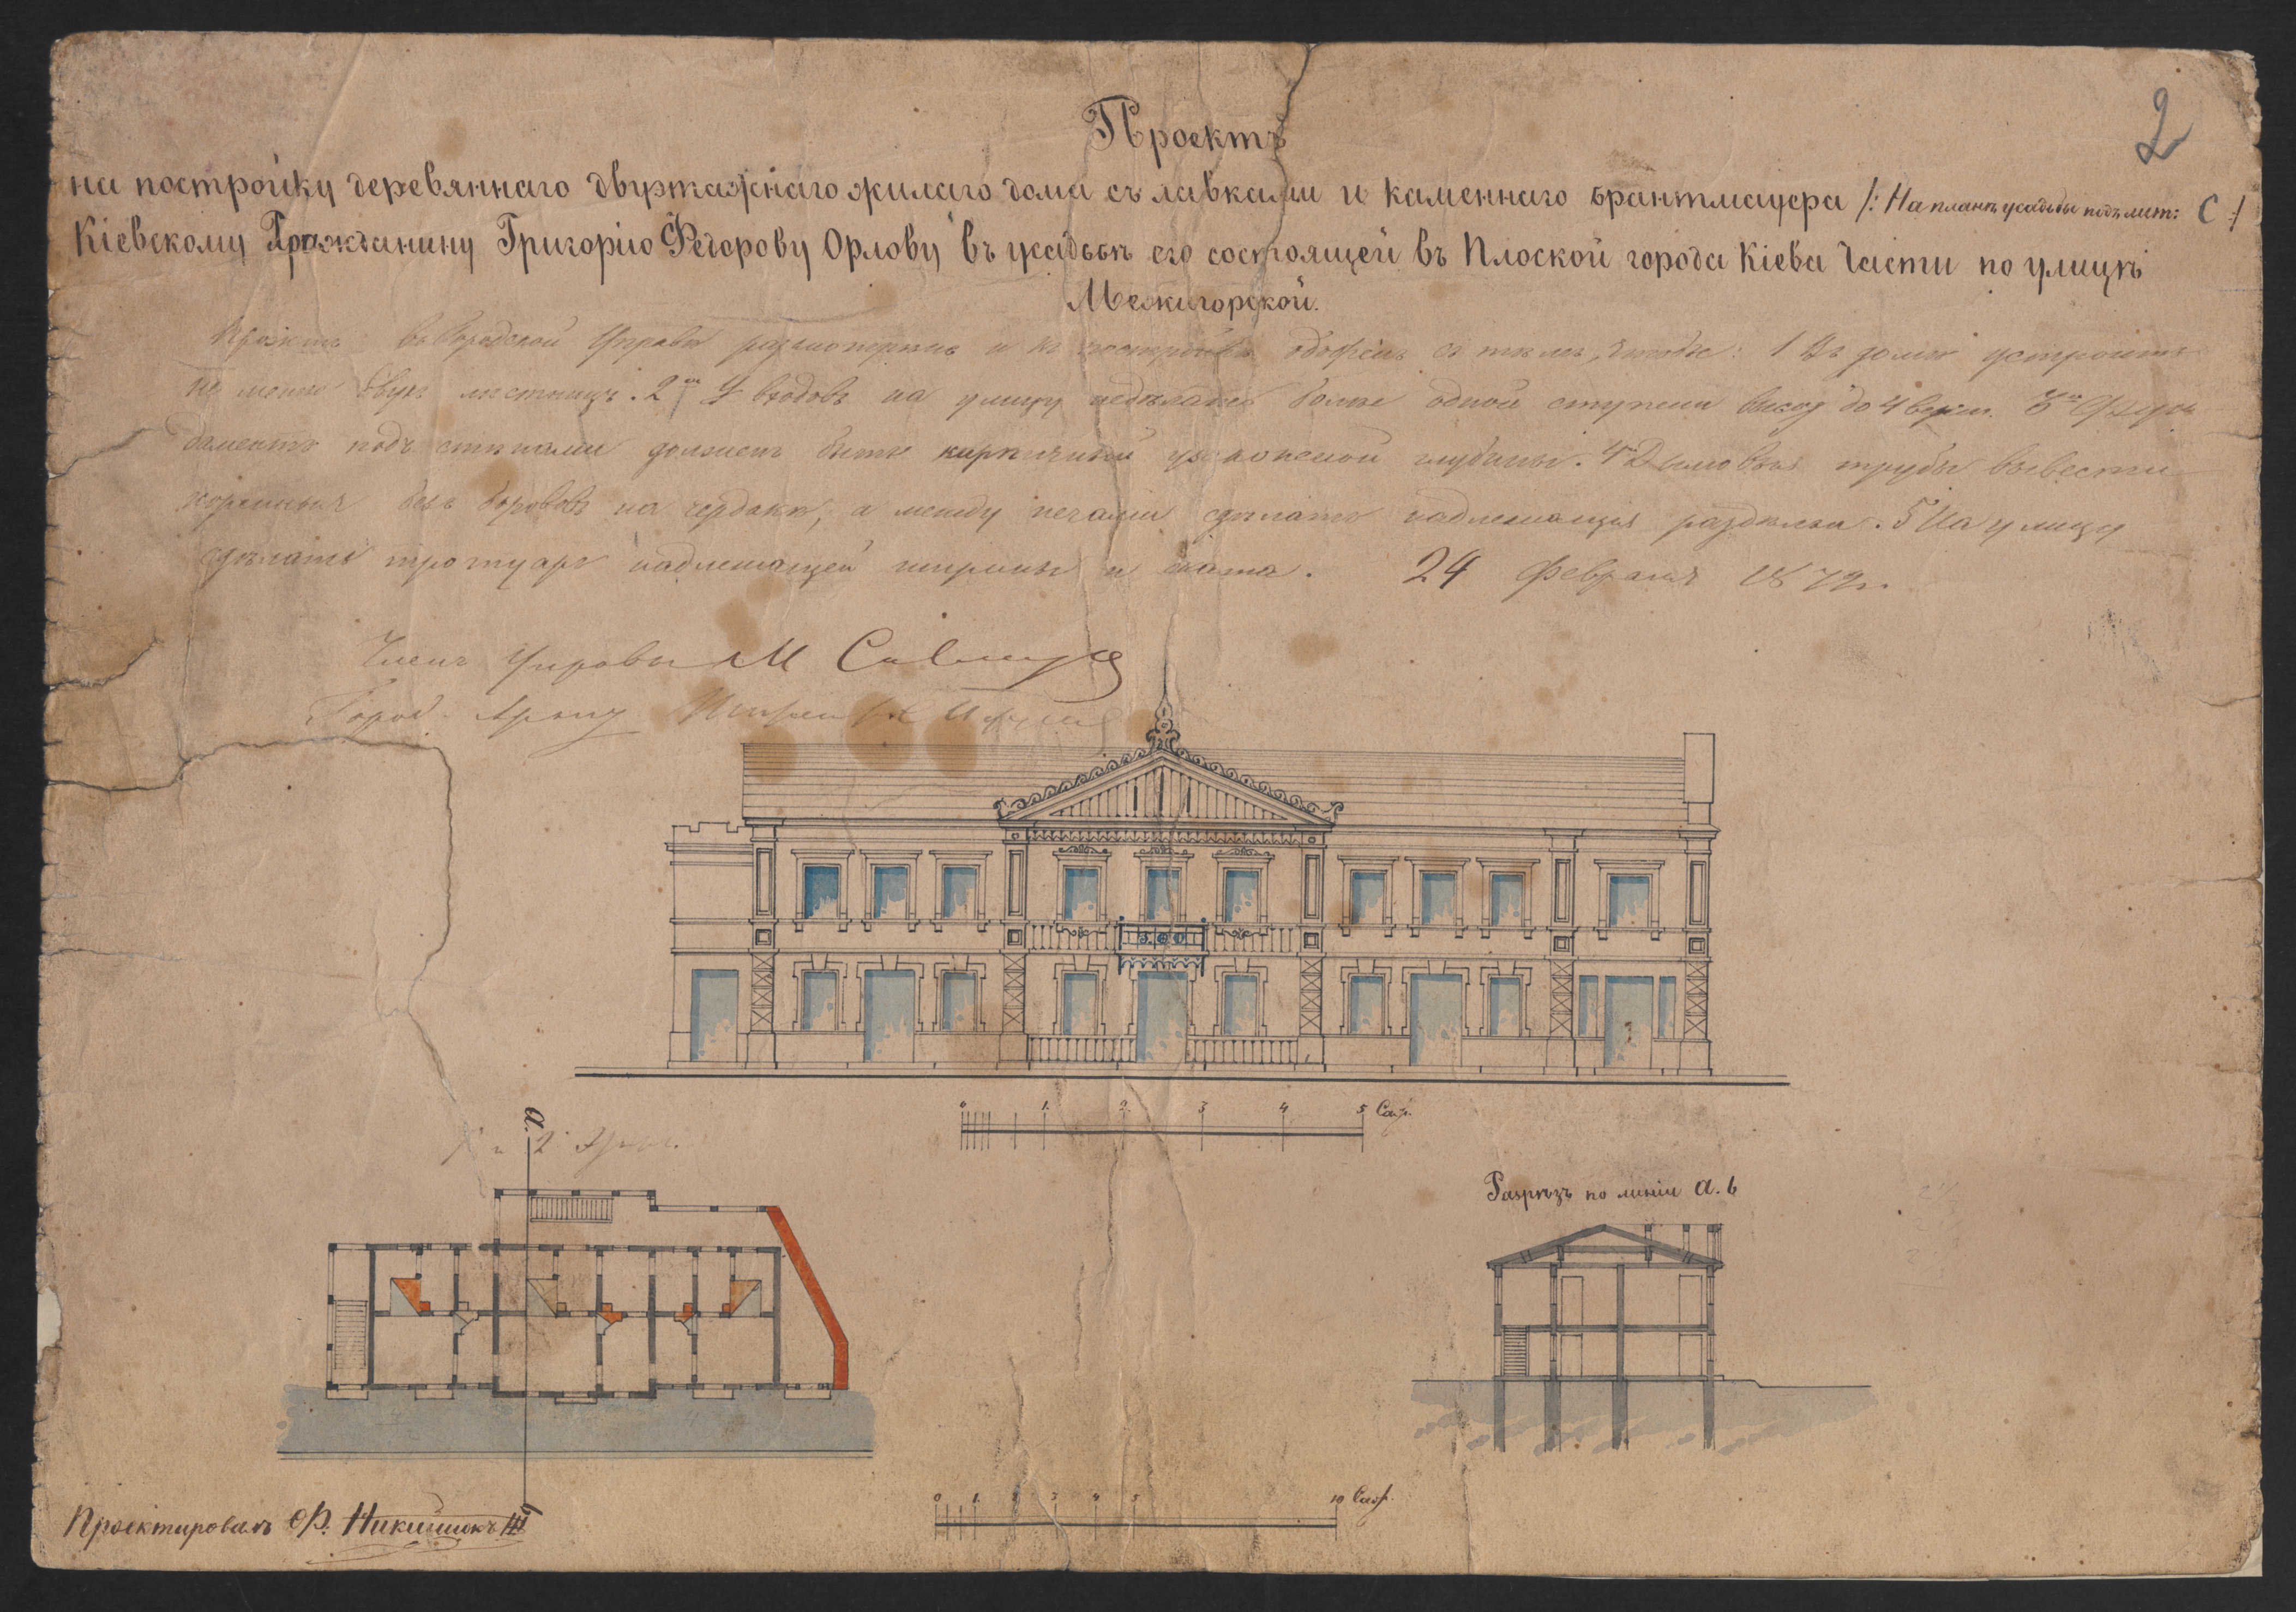 2
Проектъ
на постройку деревяннаго двухтажнаго жилаго дома съ лавками и каменнаго брантмауера /: На планѣ усадьбы подъ лит: С :/
Кіевскому Гражданину Григорію Федорову Орлову въ усадьбѣ его состоящей въ Плоской города Кіева Части по улицѣ
Межигорской.
Проэктъ въ Городской Управѣ разсмотренъ и къ постройкѣ одобренъ съ тѣмъ, чтобы: 1 Въ домѣ устроить
не менѣе двухъ лѣстницъ. 2 У входовъ на улицу недѣлать болѣе одной ступени до 4 верш. 3 Фун
даментъ подъ стѣнами долженъ быть кирпичный глубины. 4 Дымовыя трубы вывести
коренныя безъ борововъ на чердакѣ, а между печами сдѣлать надлежащія раздѣлки. 5 На улицу
сдѣлать тротуаръ надлежащей ширины и ската. 24 Февраля 1872 г.
Членъ Управы М
Город. Архит
0 1. 2. 3 4 5 Саж.
а.
1 и 2
Разрѣзъ по линіи а. b
0 1. 2 3 4 5 10 Саж.
b
Проектировалъ Ф.